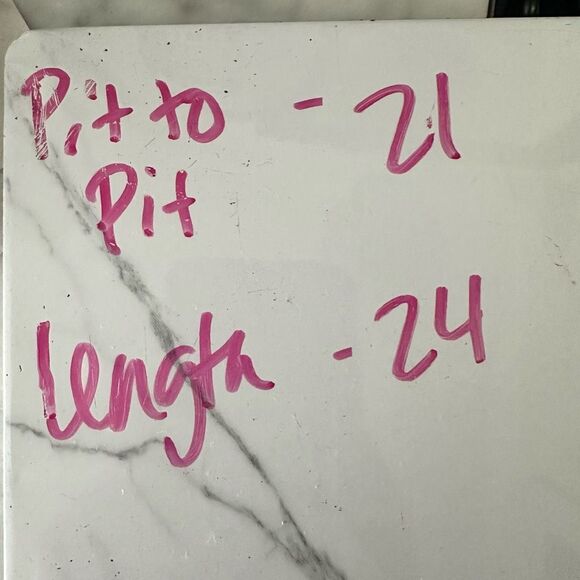 Pit to - 21
Pit
length - 24